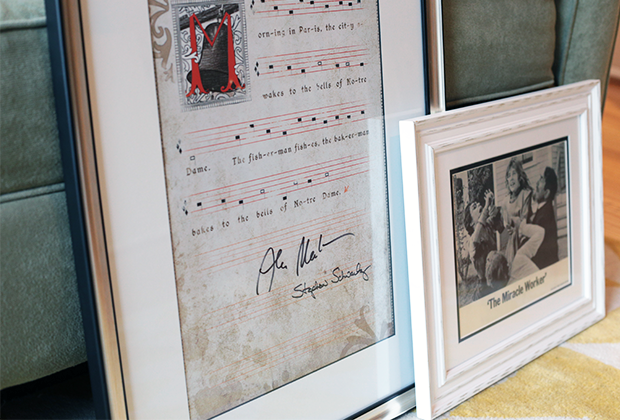 M
orn-ing in Par-is, the cit-y
wakes to the bells of No-tre
Dame. The fish-er-man fish-es, the bak-er-man
bakes to the bells of No-tre Dame.
Alan Menken
Stephen Schwartz
'The Miracle Worker'